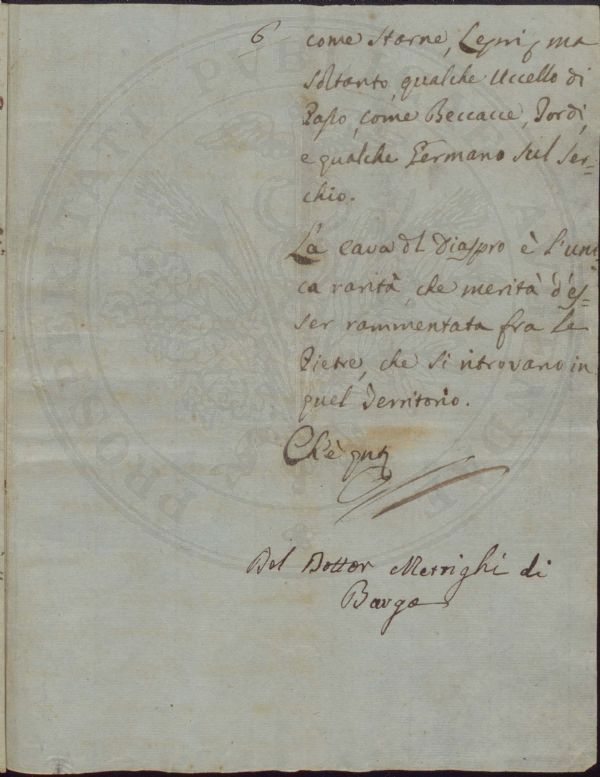 6 come Starne, Lepri, ma
soltanto, qualche Uccello di
Passo, come Beccacce, Tordi,
e qualche Germano sul Ser=
chio.
La cava del Diaspro è l'uni=
ca rarità, che merita d'es=
ser rammentata fra le
Pietre, che si ritrovano in
quel Territorio.
Ch'è quto
Del Dottor Merrighi di
Barga
PROSPERITATI PUBLICAE